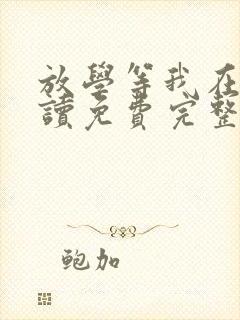 放學等我在
讀免費完整
鲍加